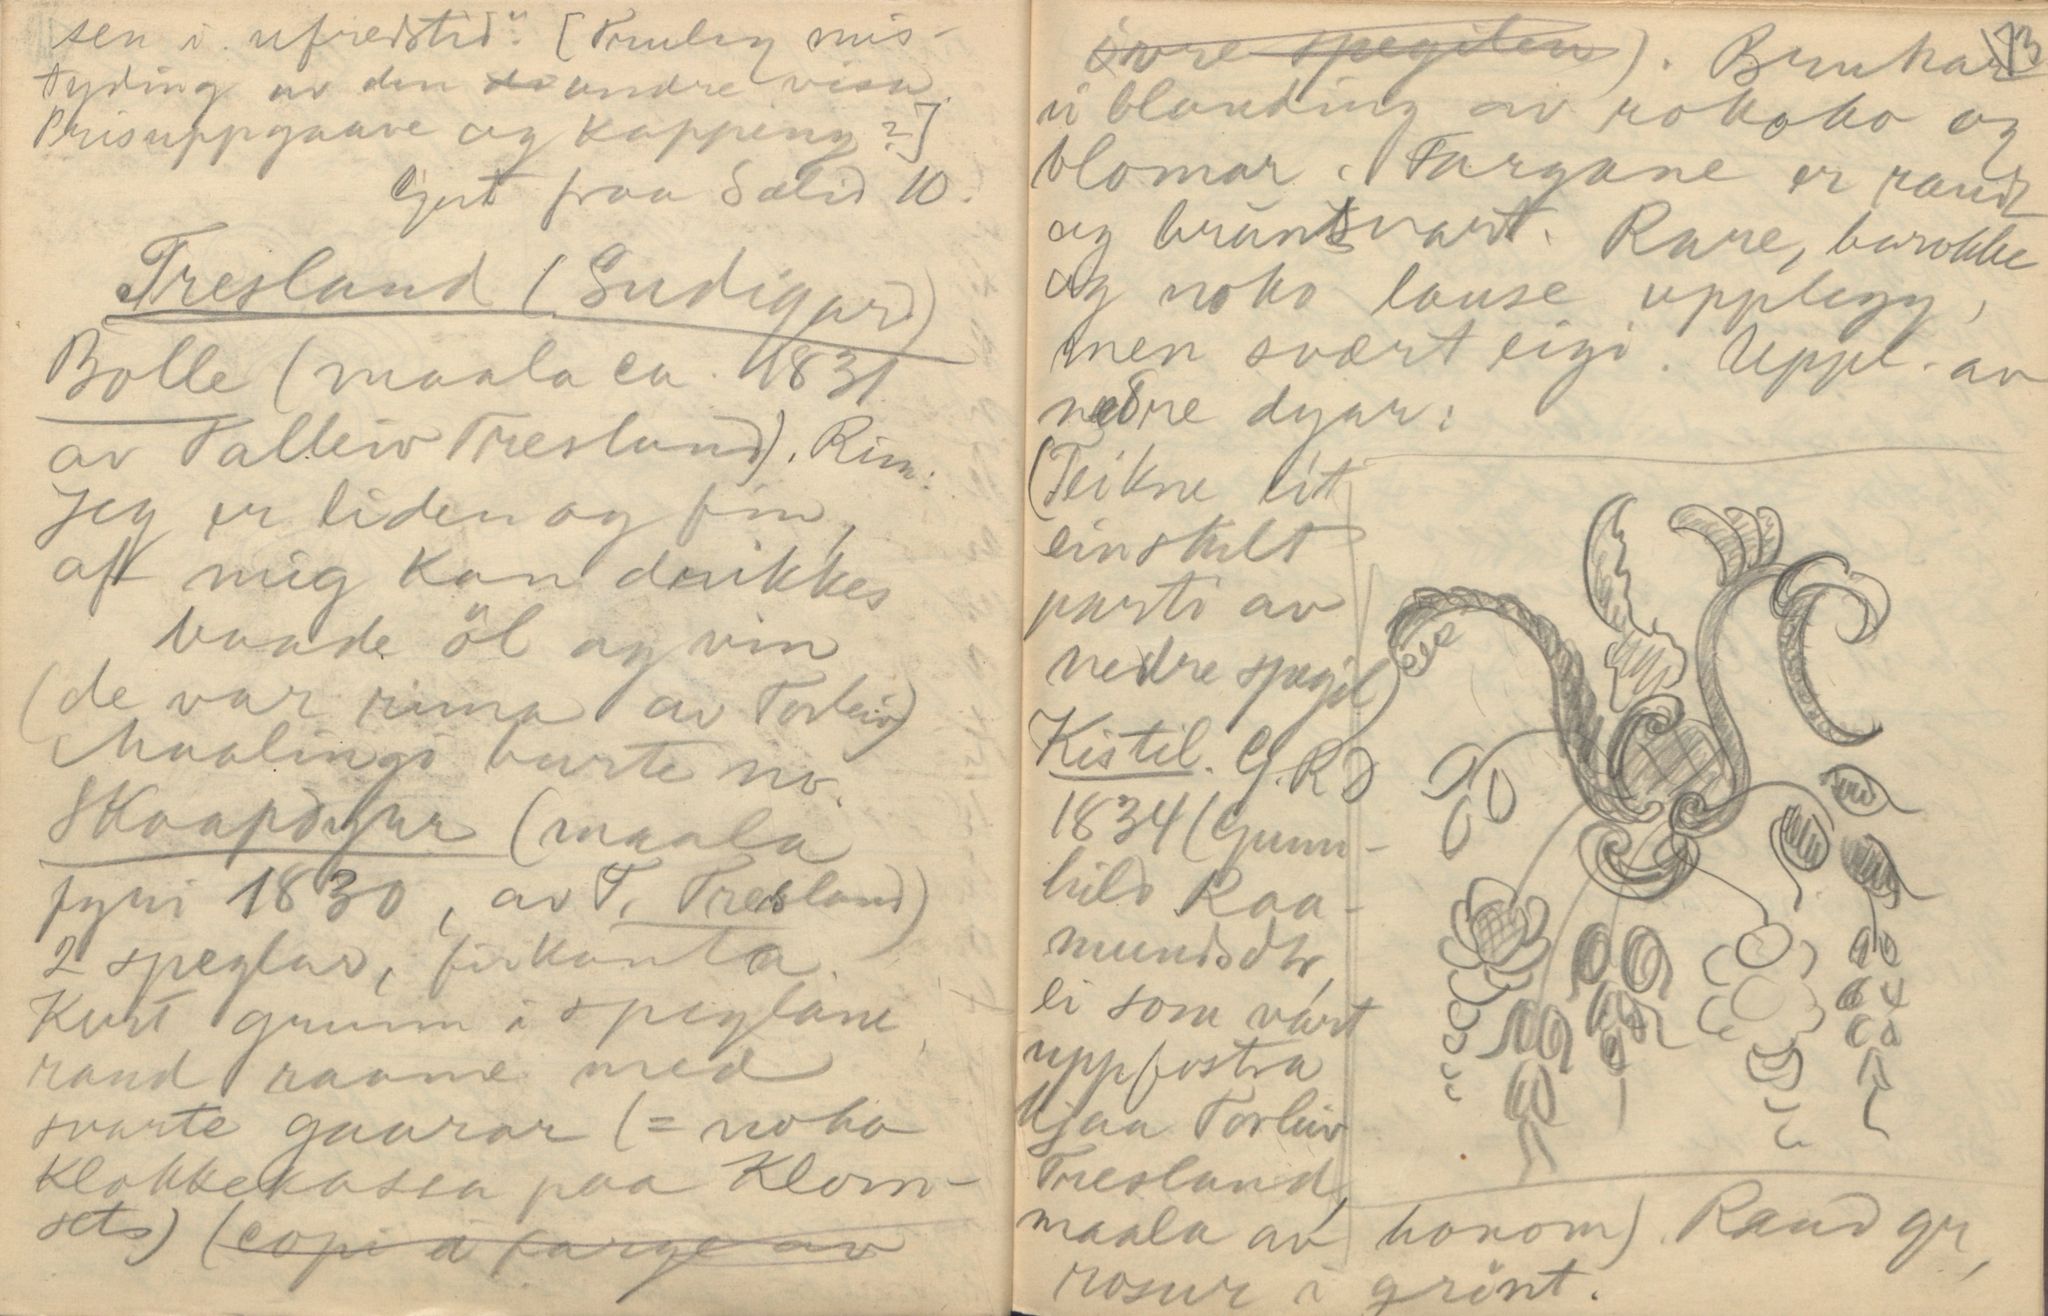 sen i ufredstid". [Truleg mis-
tyding av den andre visa.
Prisuppgaave og kapping?]
Gjet fraa Sælid 10.
Tresland (Sudigard)
Bolle (maala ca. 1831
av Talleiv Tresland). Rim:
Jeg er liden og fin,
aft mig kan drikkes
baade öl og vin
(de var rima av Torleiv)
Maalingi burte no.
Skaapdyrar (maala
fyri 1830, av T. Tresland)
2 speglar, firkanta.
Kvit grunn i speglane,
raud raame med
svarte gaarar (= noko
Klokkekassa paa Klom-
sets) (copi i farge av
övre spegilen). Brukar 13
i blanding av rokoko og
blomar. Fargane er raudt
og brunsvart. Rare, barokke
og noko lause upplegg,
men svært eigi. Uppl. av
nedre dyar:
(Teikne eit
einskilt
parti av
nedre spegil)
Kistil. G. R D
1834 (Gunn-
hild Raa-
mundsdtr,
ei som várt
uppfostra
hjaa Torleiv
Tresland,
maala av honom). Raud gr,
rosur i grönt.